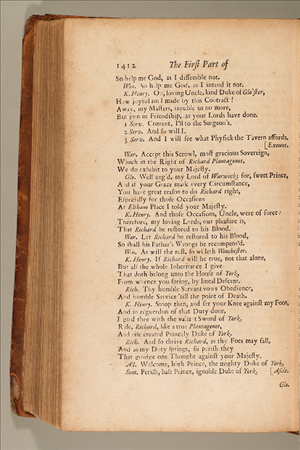 1412 The First Part of
So help me God, as I dissemble not.
Win. So help me God, as I intend it not.
K. Henry. Oh, loving Uncle, kind Duke of Glo'ster,
How joyful am I made by this Contract!
Away, my Masters, trouble us no more,
But join in Friendship, as your Lords have done.
1 Serv. Content. I'll to the Surgeon's.
2 Serv. And so will I.
3 Serv. And I will see what Physick the Tavern affords.
[Exeunt.
War. Accept this Scrowl, most gracious Sovereign,
Which in the Right of Richard Plantagenet,
We do exhibit to your Majesty.
Glo. Well urg'd, my Lord of Warwick; for, sweet Prince,
And if your Grace mark every Circumstance,
You have great reason to do Richard right,
Especially for those Occasions
At Eltham Place I told your Majesty.
K. Henry. And those Occasions, Uncle, were of force:
Therefore, my loving Lords, our pleasure is,
That Richard be restored to his Blood.
War. Let Richard be restored to his Blood,
So shall his Father's Wrongs be recompens'd.
Win. As will the rest, so willeth Winchester.
K. Henry. If Richard will be true, not that alone,
But all the whole Inheritance I give
That doth belong unto the House of York,
From whence you spring, by lineal Descent.
Rich. Thy humble Servant vows Obedience,
And humble Service 'till the point of Death.
K. Henry. Stoop then, and set your Knee against my Foot,
And in reguerdon of that Duty done,
I gird thee with the valiant Sword of York.
Rise, Richard, like a true Plantagenet,
And rise created Princely Duke of York.
Rich. And so thrive Richard, as thy Foes may fall,
And as my Duty springs, so perish they
That grudge one Thought against your Majesty.
All. Welcome, high Prince, the mighty Duke of York.
Som. Perish, base Prince, ignoble Duke of York. Aside.
Glo.